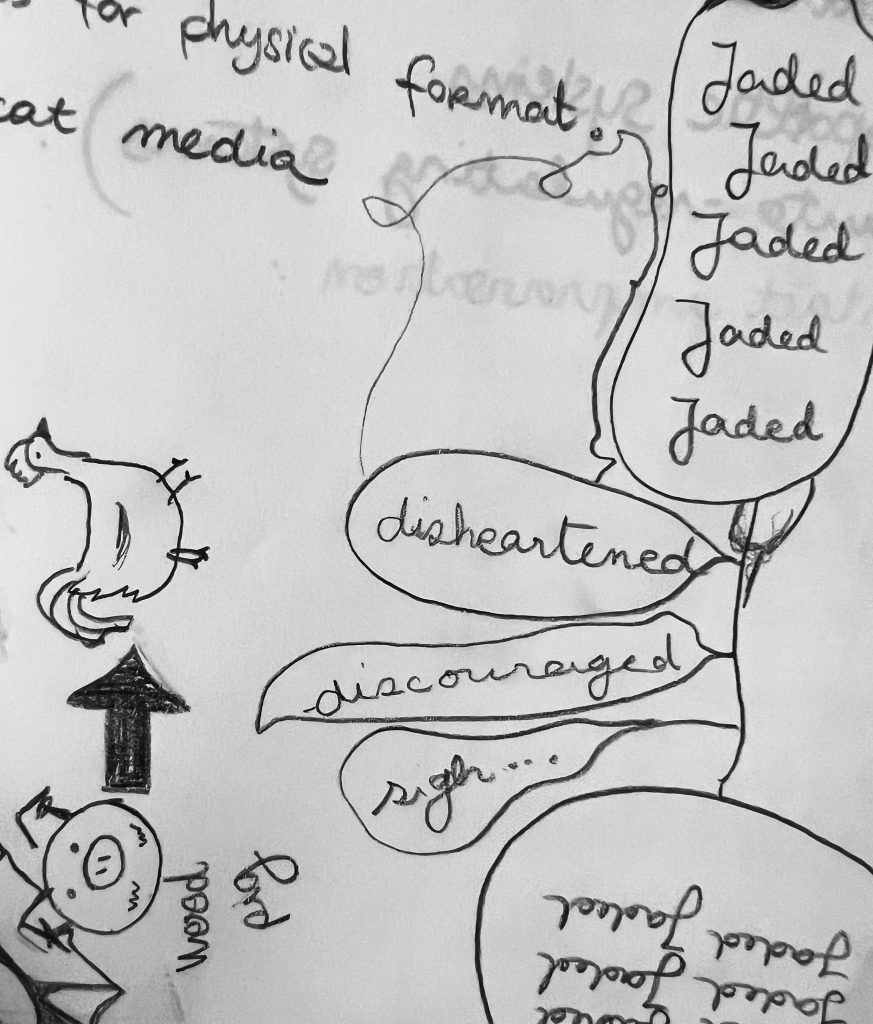 for physical
format.
cat media
Jaded
Jaded
Jaded
Jaded
Jaded
disheartened
discouraged
sigh...
Jaded
Jaded
Jaded
Jaded